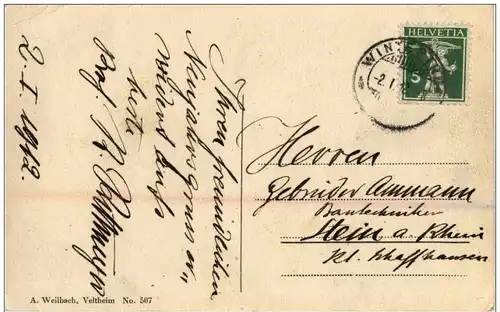 Ihren freundlichen
Neujahrsgruss er-
widert aufs
beste
Prof.
2. I. 1912.
A. Weilbach, Veltheim No. 507
HELVETIA
5
WINT
2. I.
Herren
Gebrüder Ammann
Bautechniker
Stein a. Rhein
Kt. Schaffhausen